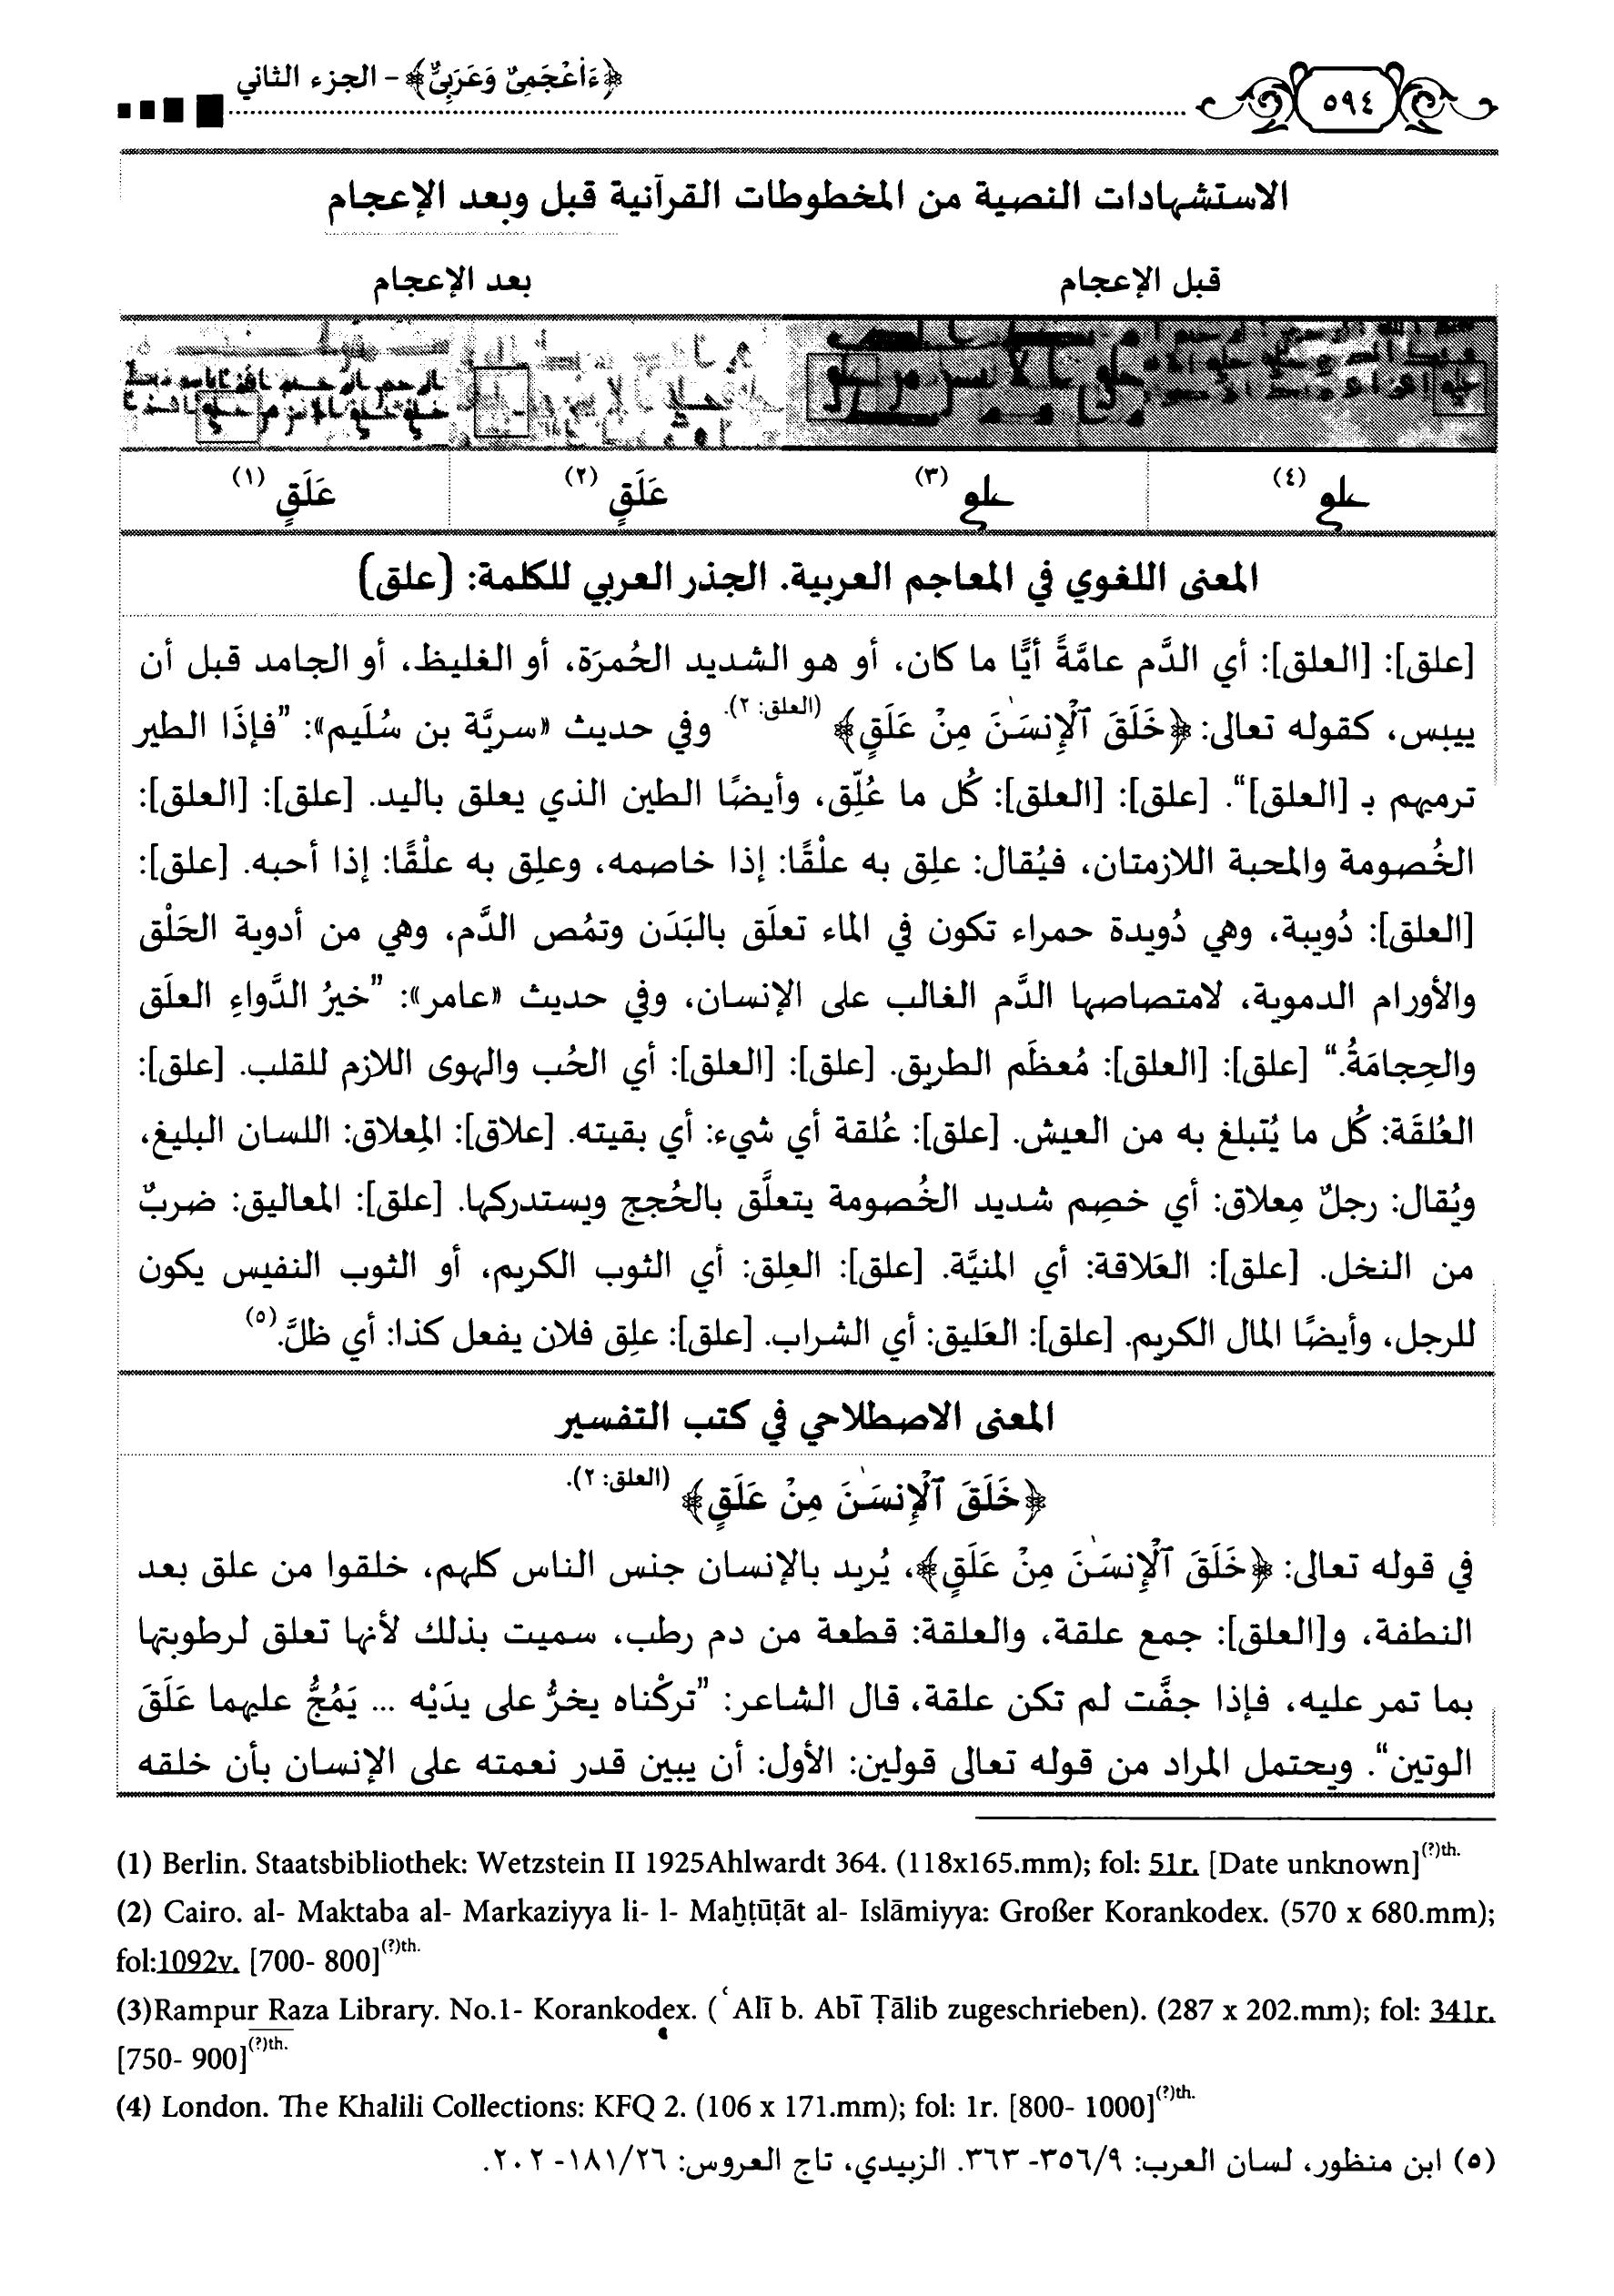 ٥٩٤
﴿ءَا۬عْجَمِىٌّ وَعَرَبِىٌّ﴾ - الجزء الثاني
الاستشهادات النصية من المخطوطات القرآنية قبل وبعد الإعجام
قبل الإعجام
بعد الإعجام
(٤) (٣) عَلَقٍ (٢) عَلَقٍ (١)
المعنى اللغوي في المعاجم العربية. الجذر العربي للكلمة: (علق)
[علق]: [العلق]: أي الدَّم عامَّةً أيًّا ما كان، أو هو الشديد الحُمرَة، أو الغليظ، أو الجامد قبل أن
ييبس، كقوله تعالى: ﴿خَلَقَ ٱلْإِنسَـٰنَ مِنْ عَلَقٍ﴾ (العلق: ٢). وفي حديث «سريَّة بن سُلَيم»: ”فإذَا الطير
ترميهم بـ [العلق]“. [علق]: [العلق]: كُل ما عُلِّق، وأيضًا الطين الذي يعلق باليد. [علق]: [العلق]:
الخُصومة والمحبة اللازمتان، فيُقال: علِق به علْقًا: إذا خاصمه، وعلِق به علْقًا: إذا أحبه. [علق]:
[العلق]: دُويبة، وهي دُويدة حمراء تكون في الماء تعلَق بالبَدَن وتمُص الدَّم، وهي من أدوية الحَلْق
والأورام الدموية، لامتصاصها الدَّم الغالب على الإنسان، وفي حديث «عامر»: ”خيرُ الدَّواءِ العلَق
والحِجامَةُ.“ [علق]: [العلق]: مُعظَم الطريق. [علق]: [العلق]: أي الحُب والهوى اللازم للقلب. [علق]:
العُلقَة: كُل ما يُتبلغ به من العيش. [علق]: عُلقة أي شيء: أي بقيته. [علاق]: المِعلاق: اللسان البليغ،
ويُقال: رجلٌ مِعلاق: أي خصِم شديد الخُصومة يتعلَّق بالحُجج ويستدركها. [علق]: المعاليق: ضربٌ
من النخل. [علق]: العَلاقة: أي المنيَّة. [علق]: العِلق: أي الثوب الكريم، أو الثوب النفيس يكون
للرجل، وأيضًا المال الكريم. [علق]: العَليق: أي الشراب. [علق]: علِق فلان يفعل كذا: أي ظلَّ.(٥)
المعنى الاصطلاحي في كتب التفسير
﴿خَلَقَ ٱلْإِنسَـٰنَ مِنْ عَلَقٍ﴾ (العلق: ٢).
في قوله تعالى: ﴿خَلَقَ ٱلْإِنسَـٰنَ مِنْ عَلَقٍ﴾، يُريد بالإنسان جنس الناس كلهم، خلقوا من علق بعد
النطفة، و[العلق]: جمع علقة، والعلقة: قطعة من دم رطب، سميت بذلك لأنها تعلق لرطوبتها
بما تمر عليه، فإذا جفَّت لم تكن علقة، قال الشاعر: ”تركْناه يخرُّ على يدَيْه ... يَمُجُّ عليهما عَلَقَ
الوتين“. ويحتمل المراد من قوله تعالى قولين: الأول: أن يبين قدر نعمته على الإنسان بأن خلقه
(1) Berlin. Staatsbibliothek: Wetzstein II 1925Ahlwardt 364. (118x165.mm); fol: 51r. [Date unknown](?)th.
(2) Cairo. al- Maktaba al- Markaziyya li- l- Maḫṭūṭāt al- Islāmiyya: Großer Korankodex. (570 x 680.mm);
fol:1092v. [700- 800](?)th.
(3)Rampur Raza Library. No.1- Korankodex. (ʿAlī b. Abī Ṭālib zugeschrieben). (287 x 202.mm); fol: 341r.
[750- 900](?)th.
(4) London. The Khalili Collections: KFQ 2. (106 x 171.mm); fol: 1r. [800- 1000](?)th.
(٥) ابن منظور، لسان العرب: ٣٥٦/٩- ٣٦٣. الزبيدي، تاج العروس: ١٨١/٢٦- ٢٠٢.